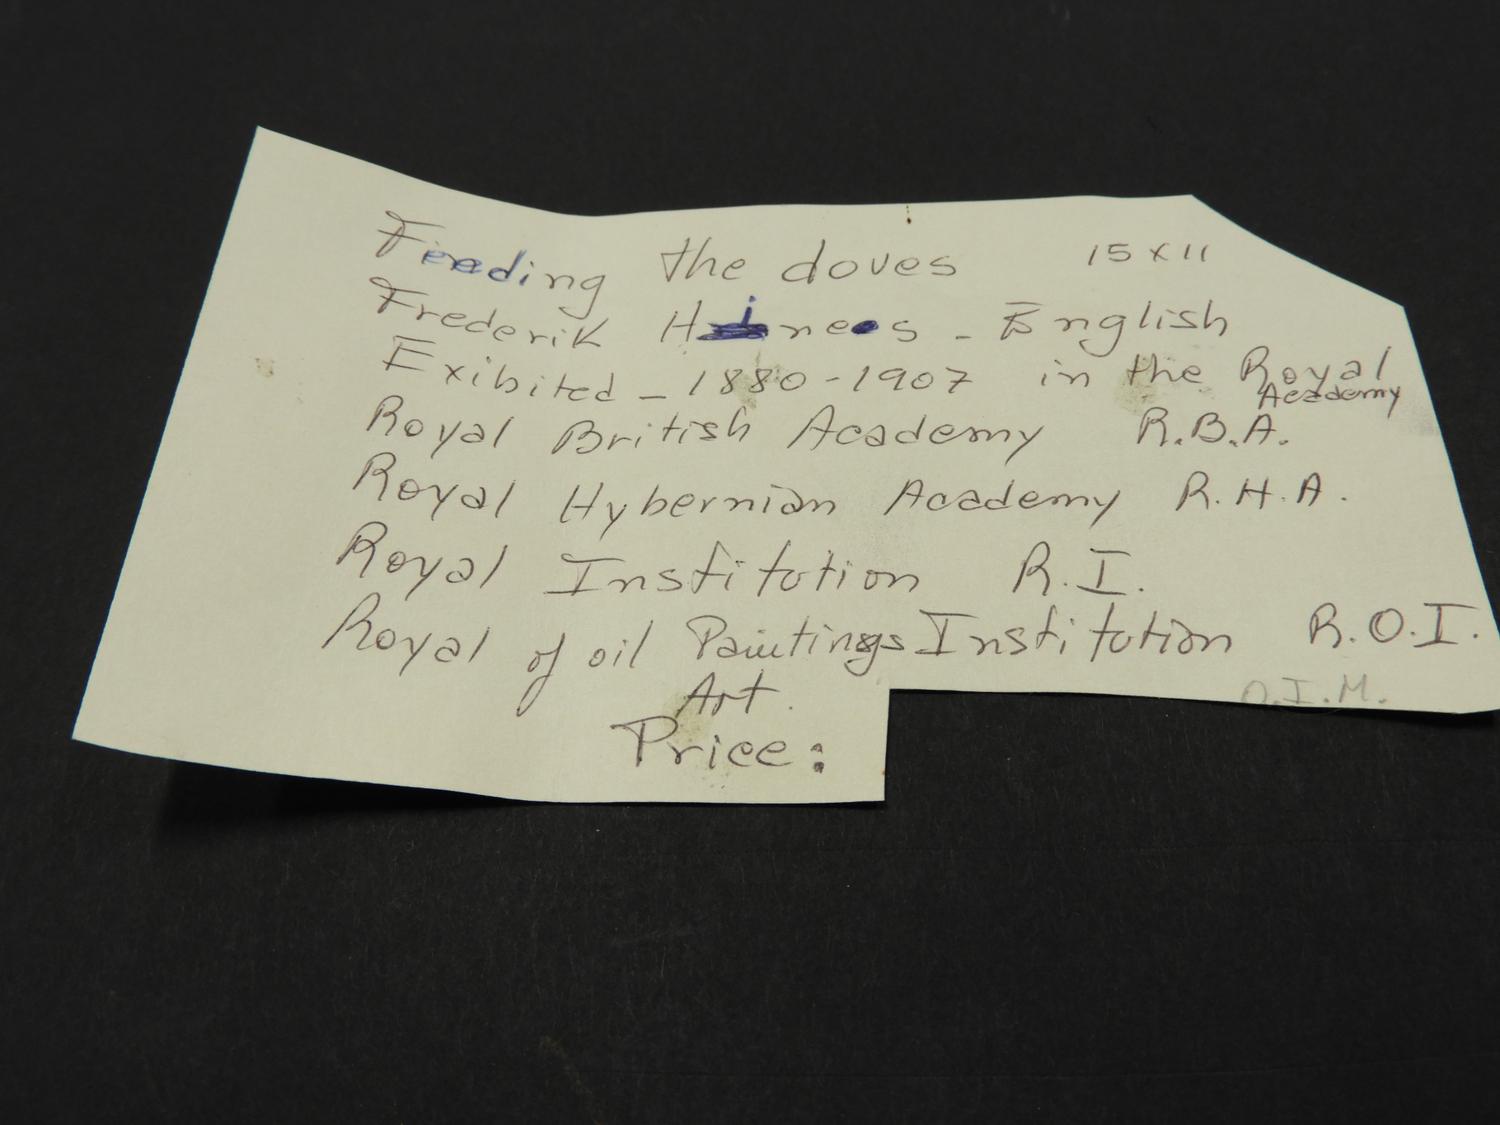 Feeding the doves 15 x 11
Frederik Hines - English
Exibited - 1880-1907 in the Royal
Academy
Royal British Academy R.B.A.
Royal Hybernian Academy R.H.A.
Royal Institution R.I.
Royal of oil Paintings Institution R.O.I.
O.I.M.
Art.
Price: